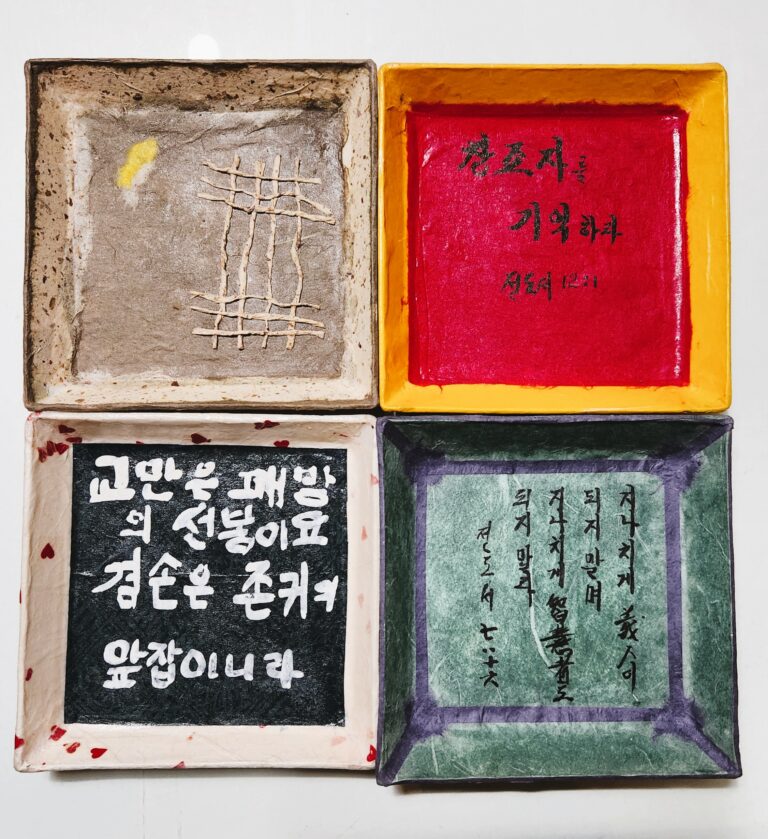 창조자를
기억하라
전도서 12:1
교만은 패망
의 선봉이요
겸손은 존귀의
앞잡이니라
지나치게 義人이
되지 말며
지나치게 智慧者도
되지 말라
전도서 七:十六